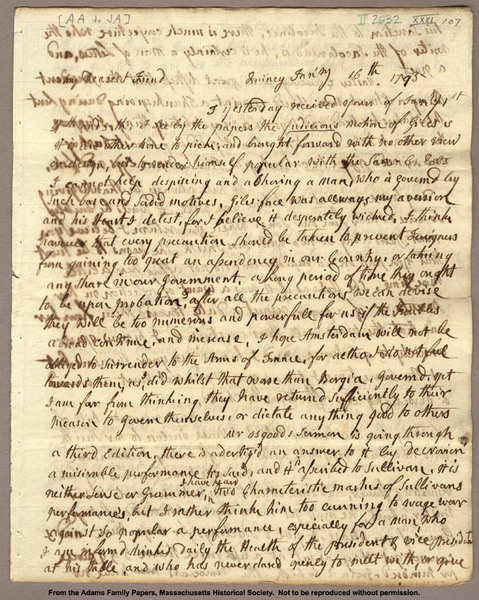 [AA to JA]
II 2632 XXXL 107
my Dearest Friend Quincy Janry 16th 1795
I yesterday received yours of Janry 1st
I see by the papers the Judicious motion of Giles is
an other bone to pick, and brought forward with no other view
to render himself popular with the Sans
I cannot help despising and abhoring a man, who is governd by
such base and sorded motives. Giles face was allways my aversion
and his Heart I detest, for I believe it desperately wicked. I think
however that every precaution should be taken to prevent Foreigners
from gaining too great an asendency in our Country, or taking
any share in our Government. a long period of time they ought
to be upon probation, after all the precautions we can devise
they will be too numerous and powerfull for us if the troubles
abroad continue, and increase. I hope Amsterdam will not be
obliged to Surrender to the Arms of France, for altho I do not feel
towards them, as I did whilst that worse than Borgia, Governd, yet
I am far from thinking they have returnd sufficiently to their
reason to govern themselves, or dictate any thing good to others
Mr osgoods sermon is going through
a third Edition, there is advertizd an answer to it by
a miserable performance tis said, and tis ascribed to Sullivan. it is
neither sense or Grammer, I hear, two Characteristic marks of Sullivans
performances, but I rather think him too cunning to wage war
against so popular a performance, especially for a man who
I am informd drinks daily the Health of the president & vice president
at his table, and who has never dared openly to melt with, or give
From the Adams Family Papers, Massachusetts Historical Society. Not to be reproduced without permission.